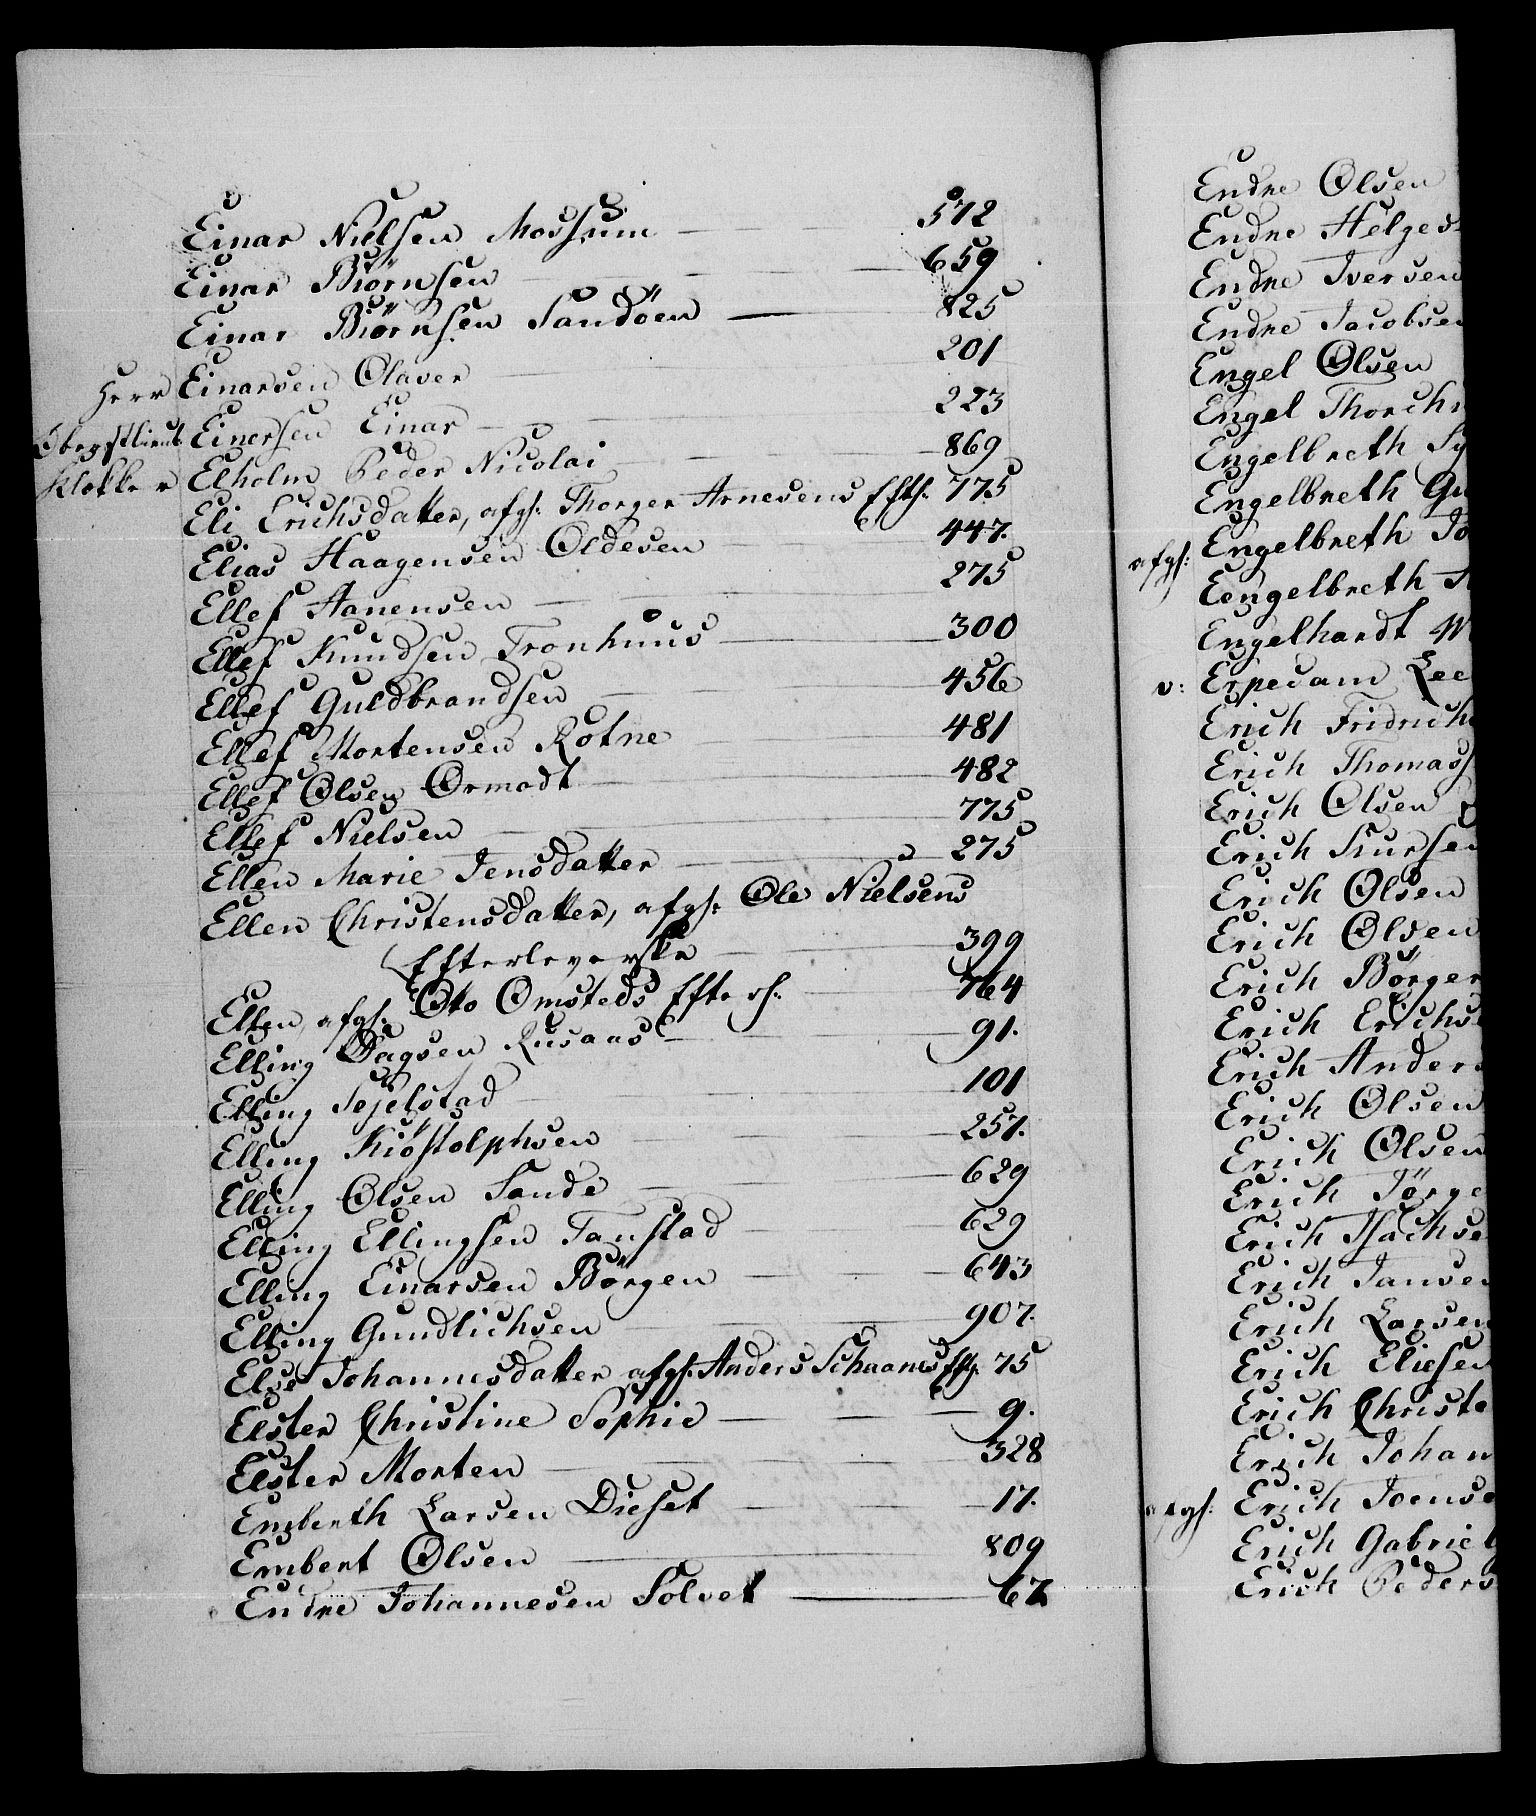 Einar Nielsen Mossum 572
Einar Biörnsen 659
Einar Biörnsen Sandöen 825
Herr Einarsen Olaver 201
Oberstlieut Einersen Einar 223
Klokker Elholm Peder Nicolai 869
Eli Erichsdatter, afgs: Thorger Arnesens Efth. 775
Elias Haagensen Oldesen 447.
Ellef Aanensen 275
Ellef Knudsen Tronhuus 300
Ellef Guldbrandsen 456
Ellef Mortensen Rotne 481
Ellef Olsen Ormodt 482
Ellef Nielsen 775
Ellen Marie Jensdatter 275
Ellen Christensdatter, afgs: Ole Nielsens
Efterleverske 399
Ellen, afgs: Otto Omsteds Efters: 764
Elling Dagsen Rusaas 91.
Elling Sejelstad 101
Elling Kiöstolphsen 257.
Elling Olsen Sande 629
Elling Ellingsen Fanstad 629
Elling Einarsen Börgen 643
Elling Gundlichsen 907.
Else Johannesdatter afgs: Anders Schaanes Eftl. 75
Elster Christine Sophie 9.
Elster Morten 328
Emberth Larsen Dieset 17.
Embert Olsen 809
Endre Johannesen Solvet 67
Endre Olsen
Endre Helges
Endre Iversen
Endre Jacobsen
Engel Olsen
Engel Thorch
Engelbreth Sy
Engelbreth Gu
afgs: Engelbreth Jo
Eengelbreth
Engelhardt
v: Erpecam Lee
Erich Fridrich
Erich Thomass
Erich Olsen
Erich Kursen
Erich Olsen
Erich Olsen
Erich Börger
Erich Erichs
Erich Anders
Erich Olsen
Erich Olsen
Erich Jörge
Erich Isachse
Erich Jansen
Erich Larsen
Erich Eliesen
Erich Christe
Erich Johan
afgs: Erich Joense
Erich Gabriel
Erich Peders